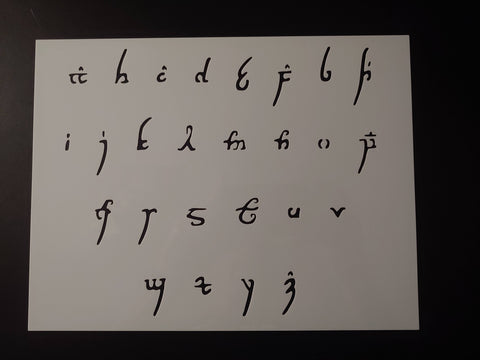 a b c d e f g h
i j k l m n o p
q r s t u v
w x y z